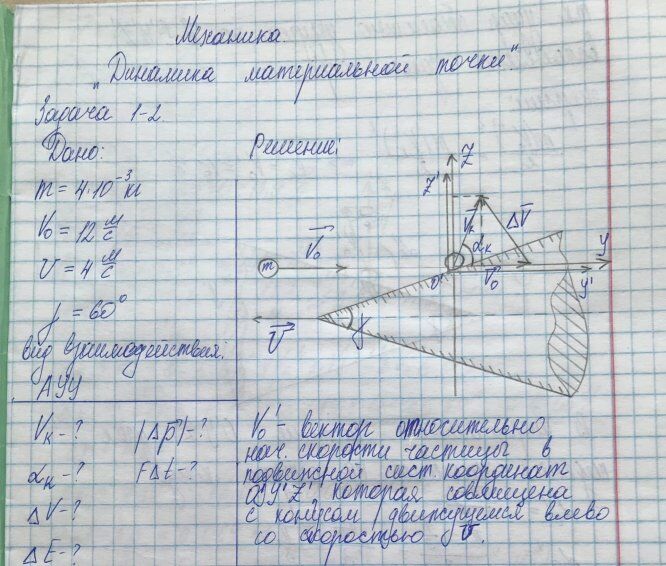 Механика.
"Динамика материальной точки".
Задача 1-2.
Дано:
Решение:
m = 4·10⁻³ кг
V₀ = 12 м/с
υ = 4 м/с
γ = 60°
вид взаимодействия:
АУУ
Vк - ?
|Δp⃗| - ?
αк - ?
FΔt - ?
ΔV - ?
ΔE - ?
Z
Z'
V⃗к
ΔV⃗
αк
m
V⃗₀
0'
V⃗₀
y
y'
υ⃗
γ
V₀' - вектор относительно
нач. скорости частицы в
подвижной сист. координат
0'y'z', которая совмещена
с конусом движущемся влево
со скоростью υ⃗.